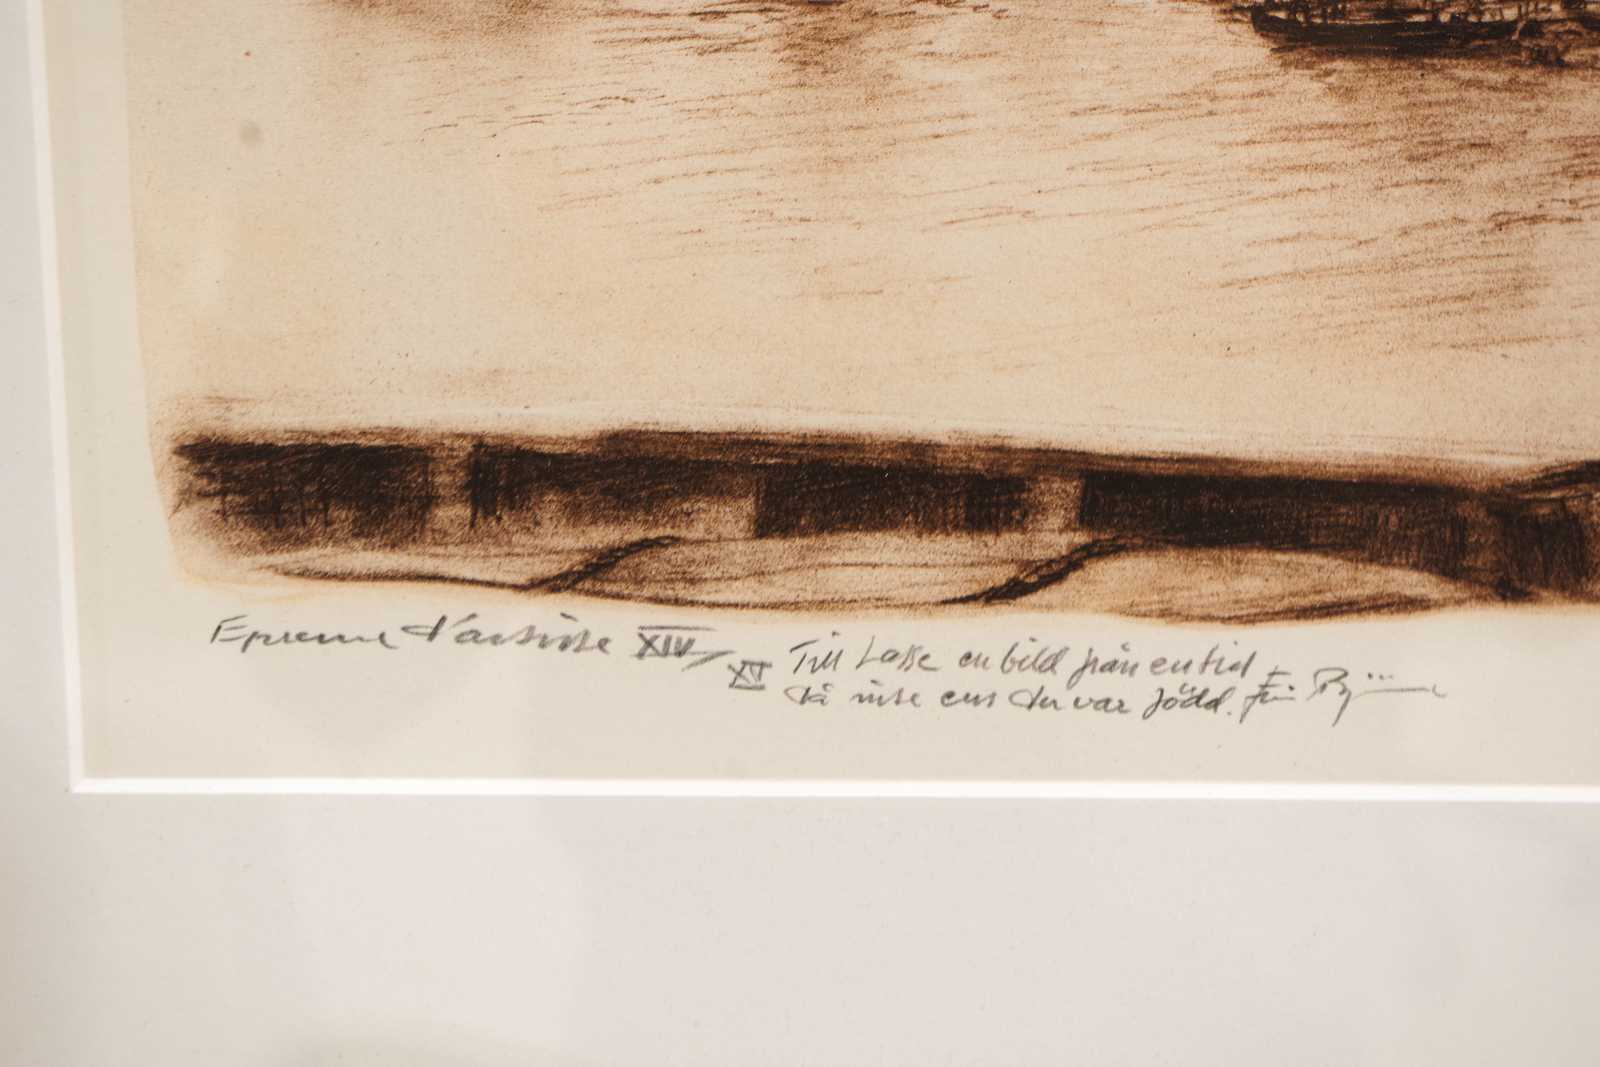 Epreuve d'artiste XIV/XV
Till Lasse en bild från en tid
då inte ens du var född. från